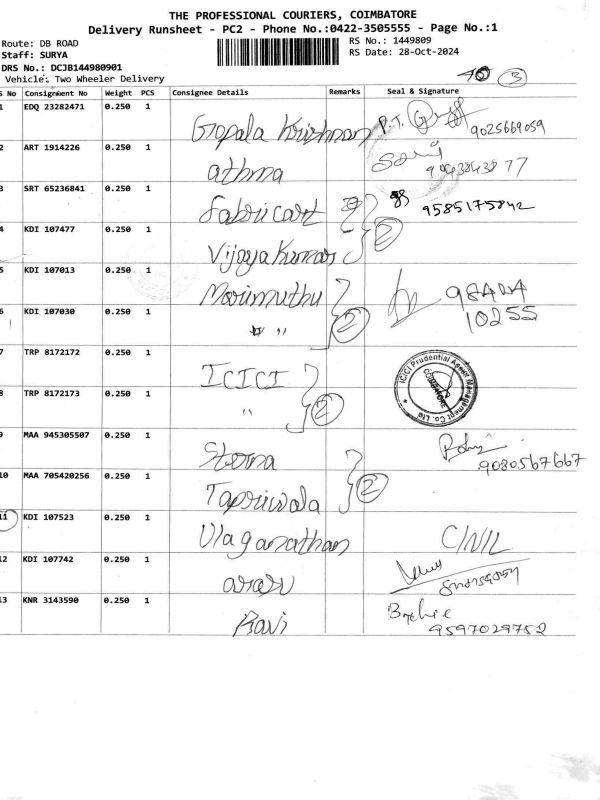 THE PROFESSIONAL COURIERS, COIMBATORE
Delivery Runsheet - PC2 - Phone No.:0422-3505555 - Page No.:1
Route: DB ROAD RS No.: 1449809
Staff: SURYA RS Date: 28-Oct-2024
DRS No.: DCJB144980901
Vehicle: Two Wheeler Delivery
3
S No Consignment No Weight PCS Consignee Details Remarks Seal & Signature
1 EDQ 23282471 0.250 1 Gopala Krishnan P.T. 9025669059
2 ART 1914226 0.250 1 athma
3 SRT 65236841 0.250 1 Fabricart 9585175842
4 KDI 107477 0.250 1 Vijaya Kumar 2
5 KDI 107013 0.250 1 Marimuthu
6 KDI 107030 0.250 1 " " 2 10255
7 TRP 8172172 0.250 1 ICICI ICICI Prudential Asset Management Co. Ltd COIMBATORE
8 TRP 8172173 0.250 1 " 2
9 MAA 945305507 0.250 1 9080567667
10 MAA 705420256 0.250 1 Tapriwala 2
11 KDI 107523 0.250 1 Ulaganathan
12 KDI 107742 0.250 1
13 KNR 3143590 0.250 1 Ravi 9597029752